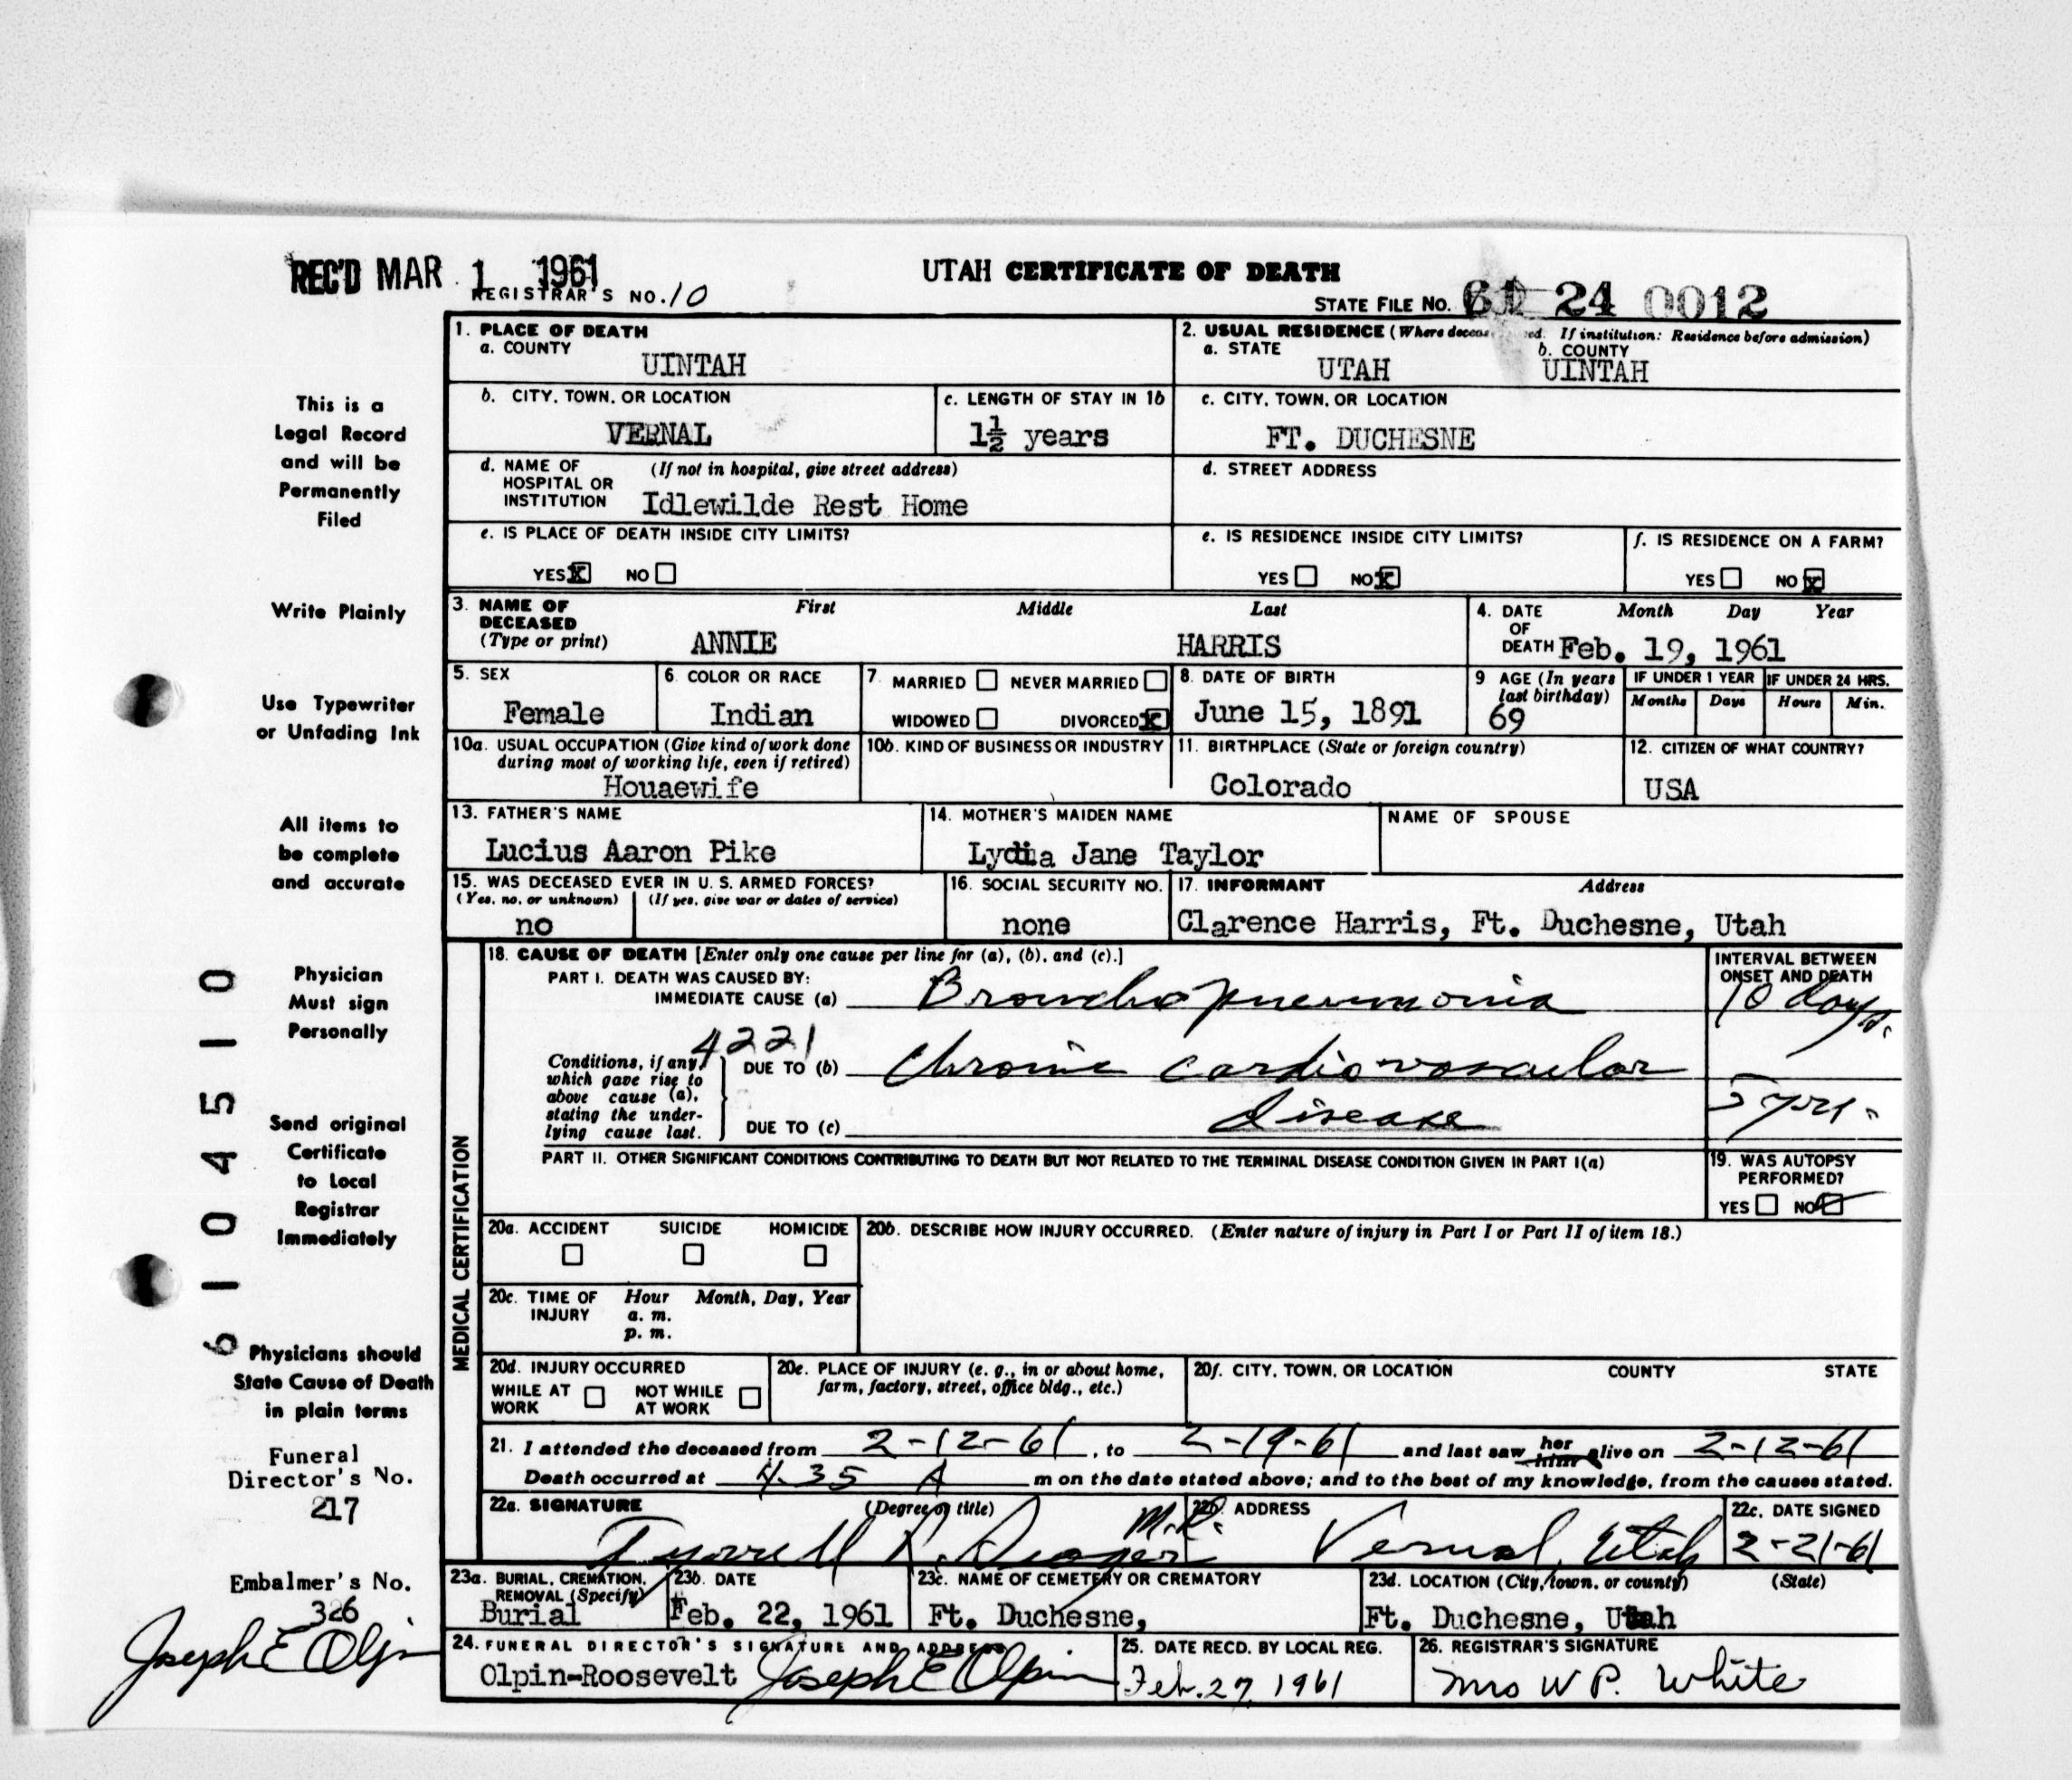 REC'D MAR 1 1961
UTAH CERTIFICATE OF DEATH
REGISTRAR'S NO. 10
STATE FILE NO. 61 24 0012
1. PLACE OF DEATH
a. COUNTY
UINTAH
2. USUAL RESIDENCE (Where deceased. If institution: Residence before admission)
a. STATE
UTAH
b. COUNTY
UINTAH
b. CITY, TOWN, OR LOCATION
VERNAL
c. LENGTH OF STAY IN 1b
1½ years
c. CITY, TOWN, OR LOCATION
FT. DUCHESNE
d. NAME OF HOSPITAL OR INSTITUTION (If not in hospital, give street address)
Idlewilde Rest Home
d. STREET ADDRESS
e. IS PLACE OF DEATH INSIDE CITY LIMITS?
YES X NO
e. IS RESIDENCE INSIDE CITY LIMITS?
YES NO X
f. IS RESIDENCE ON A FARM?
YES NO X
3. NAME OF DECEASED (Type or print)
First Middle Last
ANNIE HARRIS
4. DATE OF DEATH Month Day Year
Feb. 19, 1961
5. SEX
Female
6. COLOR OR RACE
Indian
7. MARRIED NEVER MARRIED
WIDOWED DIVORCED X
8. DATE OF BIRTH
June 15, 1891
9 AGE (In years last birthday)
69
IF UNDER 1 YEAR IF UNDER 24 HRS.
Months Days Hours Min.
10a. USUAL OCCUPATION (Give kind of work done during most of working life, even if retired)
Houaewife
10b. KIND OF BUSINESS OR INDUSTRY
11. BIRTHPLACE (State or foreign country)
Colorado
12. CITIZEN OF WHAT COUNTRY?
USA
13. FATHER'S NAME
Lucius Aaron Pike
14. MOTHER'S MAIDEN NAME
Lydia Jane Taylor
NAME OF SPOUSE
15. WAS DECEASED EVER IN U. S. ARMED FORCES?
(Yes, no, or unknown) (If yes, give war or dates of service)
no
16. SOCIAL SECURITY NO.
none
17. INFORMANT Address
Clarence Harris, Ft. Duchesne, Utah
MEDICAL CERTIFICATION
18. CAUSE OF DEATH [Enter only one cause per line for (a), (b), and (c).]
PART I. DEATH WAS CAUSED BY:
IMMEDIATE CAUSE (a) Bronchopneumonia
INTERVAL BETWEEN ONSET AND DEATH
10 days.
4221
Conditions, if any, which gave rise to above cause (a), stating the underlying cause last.
DUE TO (b) Chronic cardiovascular
disease
5 yrs.
DUE TO (c)
PART II. OTHER SIGNIFICANT CONDITIONS CONTRIBUTING TO DEATH BUT NOT RELATED TO THE TERMINAL DISEASE CONDITION GIVEN IN PART I(a)
19. WAS AUTOPSY PERFORMED?
YES NO
20a. ACCIDENT SUICIDE HOMICIDE
20b. DESCRIBE HOW INJURY OCCURRED. (Enter nature of injury in Part I or Part II of item 18.)
20c. TIME OF INJURY Hour Month, Day, Year
a. m.
p. m.
20d. INJURY OCCURRED
WHILE AT WORK NOT WHILE AT WORK
20e. PLACE OF INJURY (e. g., in or about home, farm, factory, street, office bldg., etc.)
20f. CITY, TOWN, OR LOCATION COUNTY STATE
21. I attended the deceased from 2-12-61, to 2-19-61 and last saw her him alive on 2-12-61
Death occurred at 4.35 A m on the date stated above; and to the best of my knowledge, from the causes stated.
22a. SIGNATURE (Degree or title)
M.D.
22b. ADDRESS
Vernal, Utah
22c. DATE SIGNED
2-21-61
23a. BURIAL, CREMATION, REMOVAL (Specify)
Burial
23b. DATE
Feb. 22, 1961
23c. NAME OF CEMETERY OR CREMATORY
Ft. Duchesne,
23d. LOCATION (City, town, or county) (State)
Ft. Duchesne, Utah
24. FUNERAL DIRECTOR'S SIGNATURE AND ADDRESS
Olpin-Roosevelt Joseph E Olpin
25. DATE RECD. BY LOCAL REG.
Feb. 27, 1961
26. REGISTRAR'S SIGNATURE
Mrs W P. White
This is a
Legal Record
and will be
Permanently
Filed
Write Plainly
Use Typewriter
or Unfading Ink
All items to
be complete
and accurate
Physician
Must sign
Personally
Send original
Certificate
to Local
Registrar
Immediately
Physicians should
State Cause of Death
in plain terms
Funeral
Director's No.
217
Embalmer's No.
326
Joseph E Olpin
61 04510